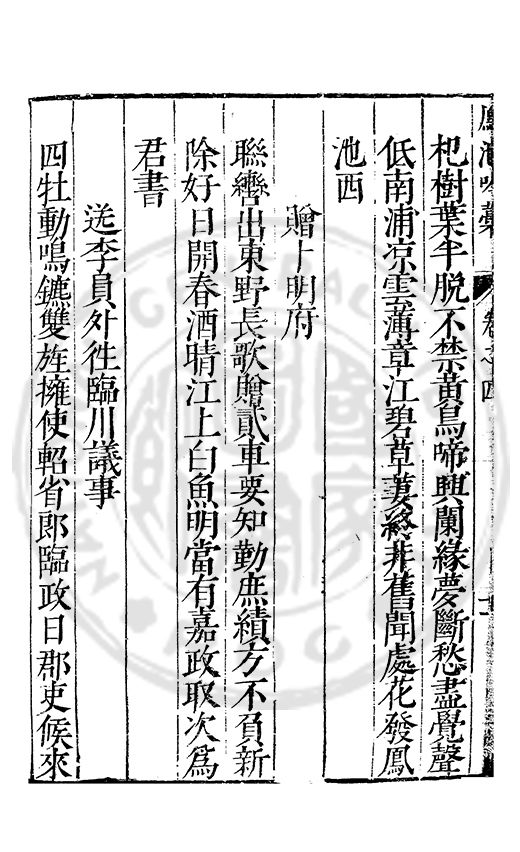 鳳池吟藁　卷之四
杞樹葉半脫不禁黃鳥啼興闌緣夢斷愁盡覺聲
低南浦凉雲薄章江碧草萋終非舊聞處花發鳳
池西
贈卜明府
聮轡出東野長歌贈貳車要知勤庶績方不負新
除好日開春酒晴江上白魚明當有嘉政取次爲
君書
送李員外徃臨川議事
四牡動鳴鑣雙旌擁使軺省郎臨政日郡吏候來